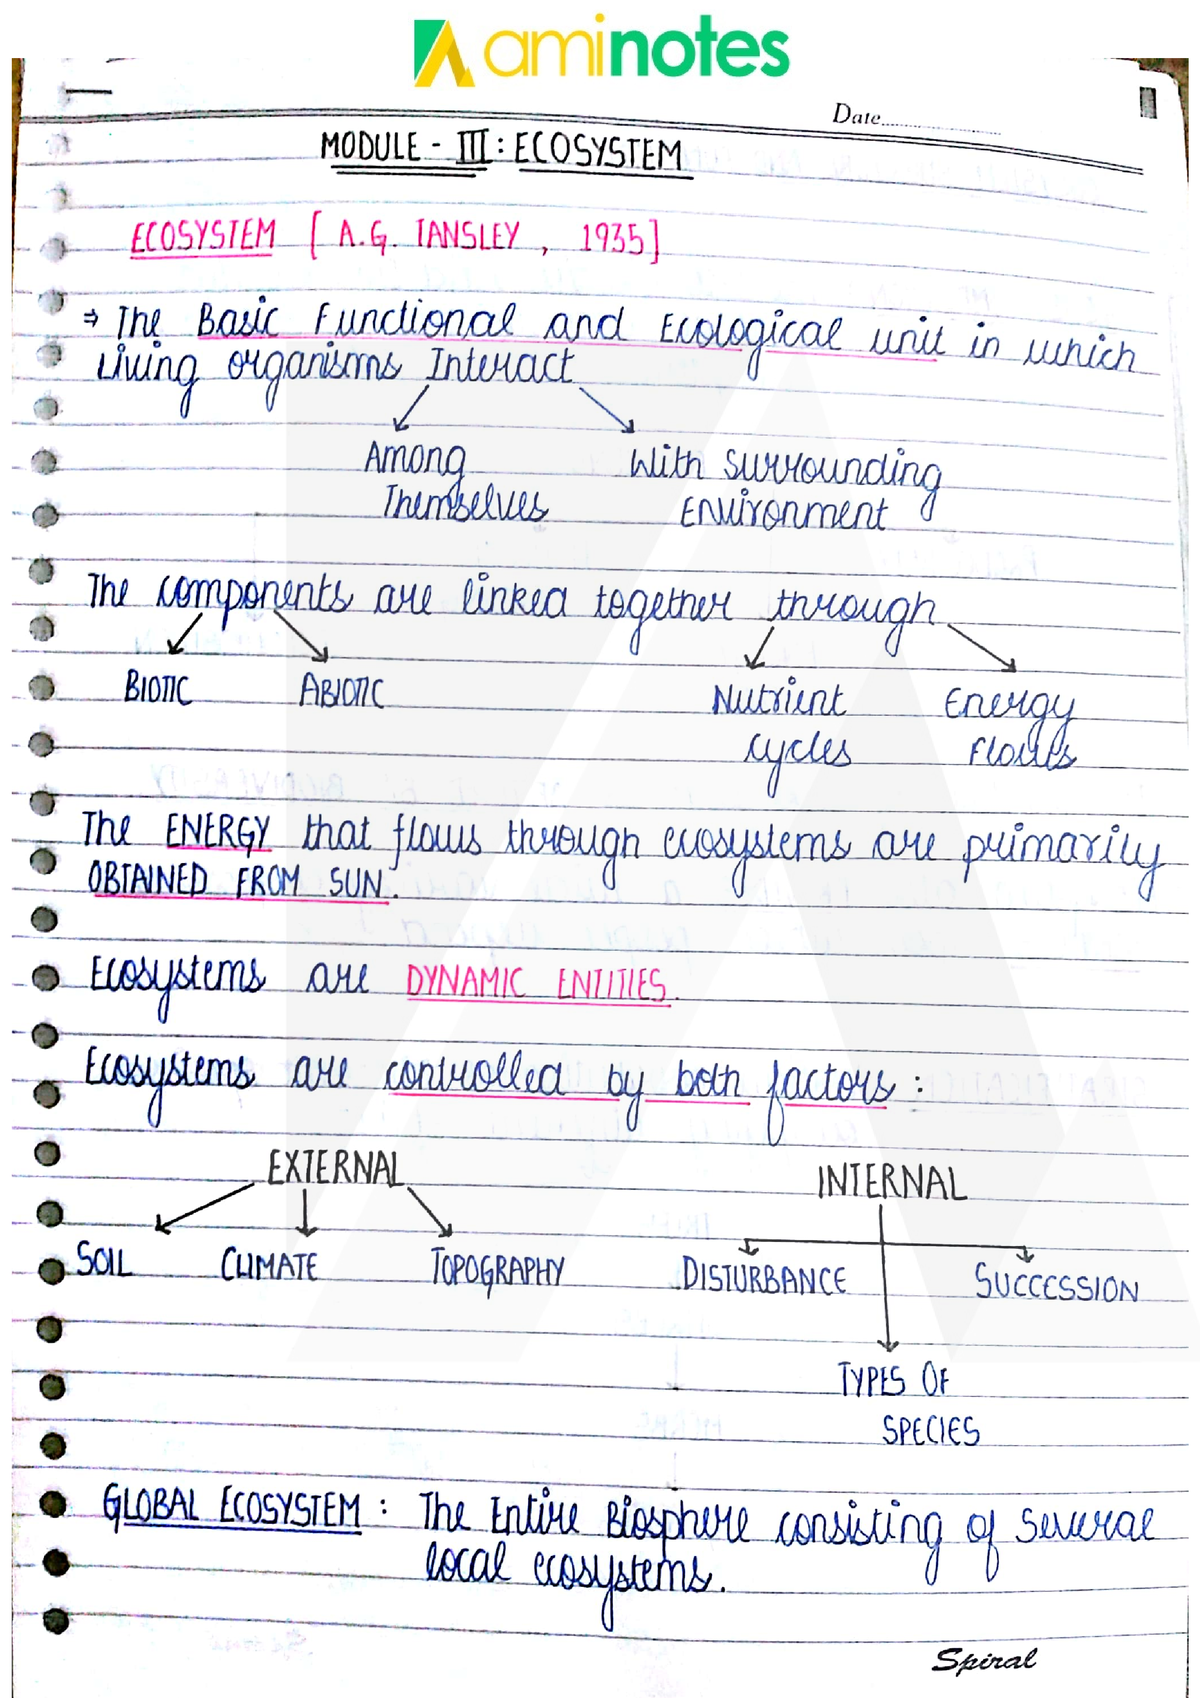 aminotes
Date
MODULE - III : ECOSYSTEM
ECOSYSTEM [ A.G. TANSLEY , 1935 ]
⇒ The Basic Functional and Ecological unit in which
Living organisms Interact
Among With surrounding
Themselves Environment
The components are linked together through
BIOTIC ABIOTIC Nutrient Energy
cycles Flows
The ENERGY that flows through ecosystems are primarily
OBTAINED FROM SUN.
Ecosystems are DYNAMIC ENTITIES.
Ecosystems are controlled by both factors :
EXTERNAL INTERNAL
SOIL CLIMATE TOPOGRAPHY DISTURBANCE SUCCESSION
TYPES OF
SPECIES
GLOBAL ECOSYSTEM : The Entire Biosphere consisting of several
local ecosystems.
Spiral